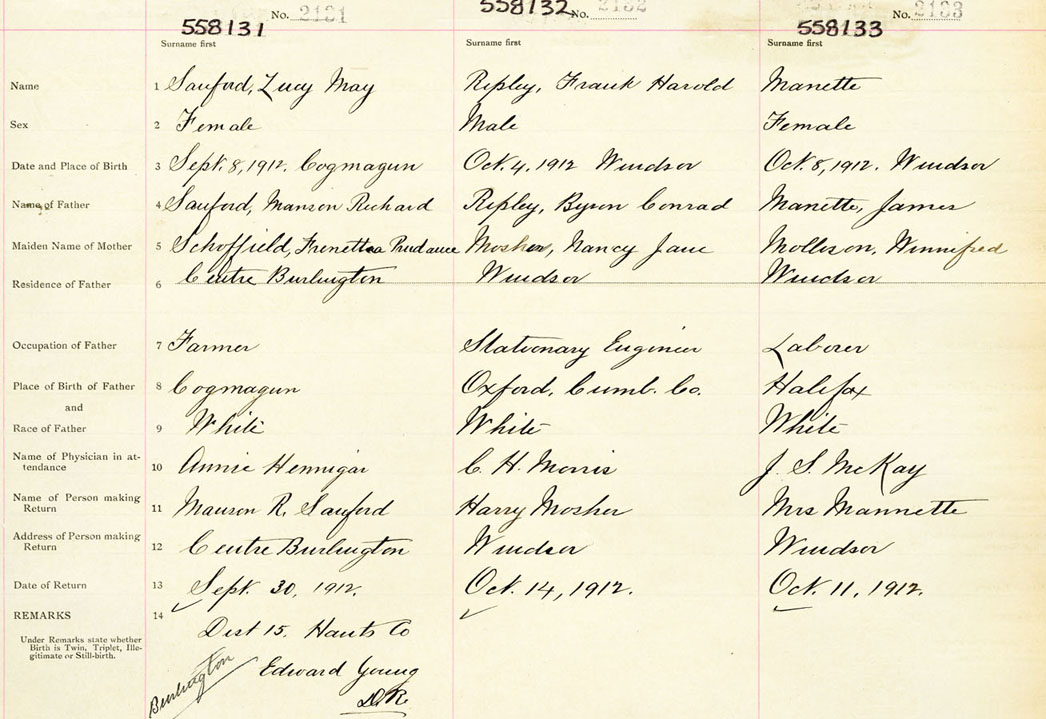 No. 2131 No. 2132 No. 2133
558131 558132 558133
Surname first Surname first Surname first
Name 1 Sanford, Lucy May Ripley, Frank Harold Manette
Sex 2 Female Male Female
Date and Place of Birth 3 Sept. 8, 1912. Cogmagun Oct. 4, 1912 Windsor Oct. 8, 1912. Windsor
Name of Father 4 Sanford, Manson Richard Ripley, Byron Conrad Manette, James
Maiden Name of Mother 5 Schoffield, Prudance Mosher, Nancy Jane Mollison, Winnifred
Residence of Father 6 Centre Burlington Windsor Windsor
Occupation of Father 7 Farmer Stationary Engineer Laborer
Place of Birth of Father 8 Cogmagun Oxford, Cumb. Co. Halifax
and
Race of Father 9 White White White
Name of Physician in at-
tendance 10 Annie Hennigar C. H. Morris J. S. McKay
Name of Person making
Return 11 Manson R. Sanford Harry Mosher Mrs Mannette
Address of Person making
Return 12 Centre Burlington Windsor Windsor
Date of Return 13 Sept. 30, 1912. Oct. 14, 1912. Oct. 11, 1912.
REMARKS 14
Dist 15. Hants Co
Under Remarks state whether
Birth is Twin, Triplet, Ille-
gitimate or Still-birth.
Burlington Edward Young
D.R.